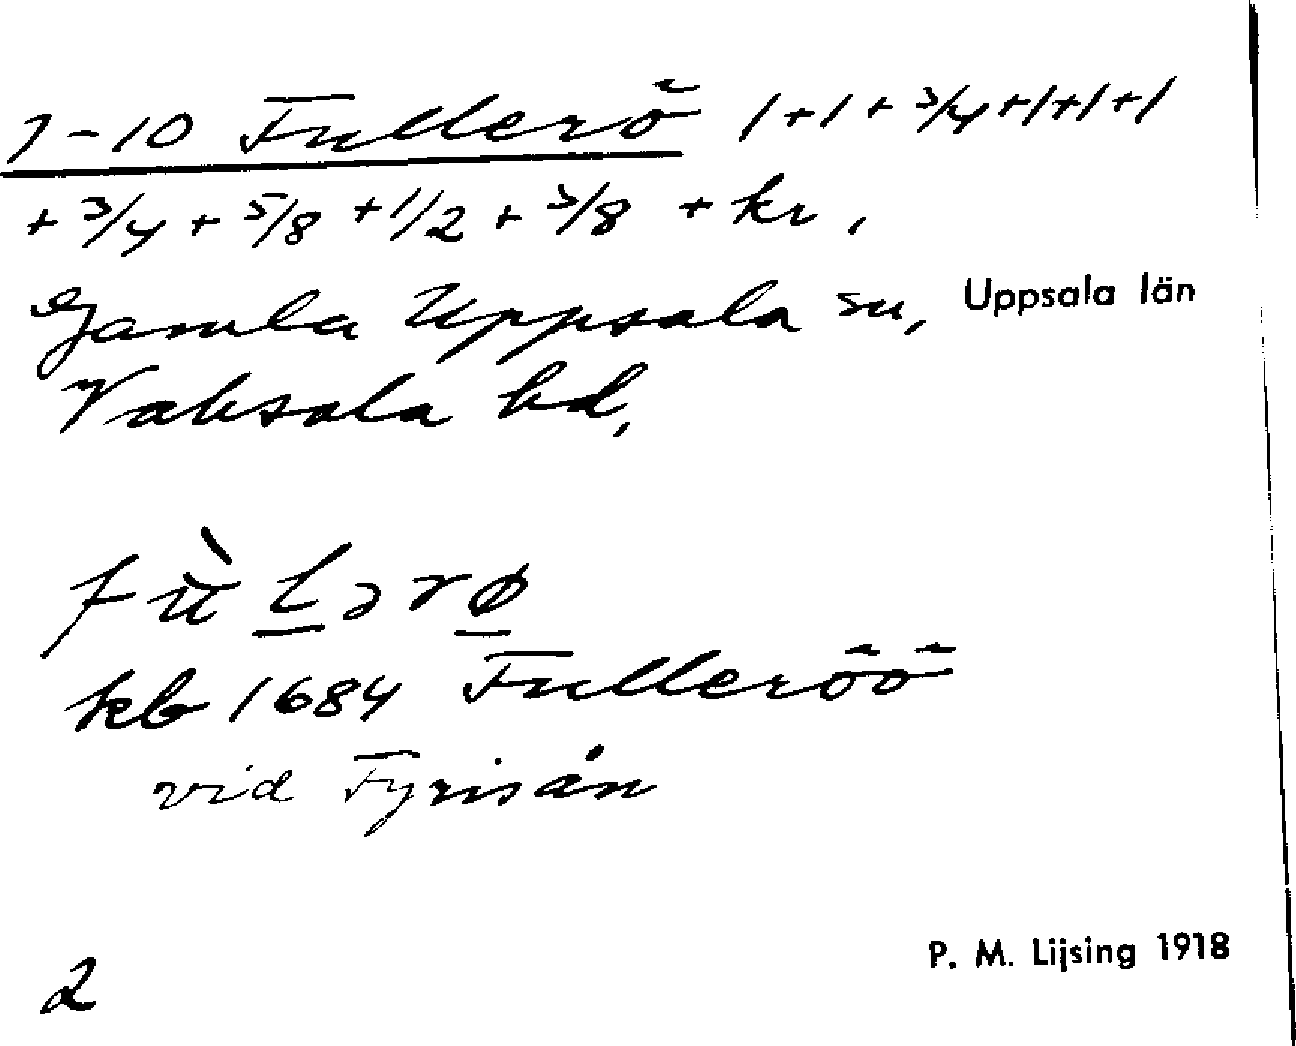 1-10 Fullerö 1+1+3/4+1+1+1
+3/4+5/8+1/2+3/8+kr,
Gamla Uppsala sn, Uppsala län
Vaksala hd,
fùlərø
kb 1684 Fulleröö
vid Fyrisån
2
P. M. Lijsing 1918